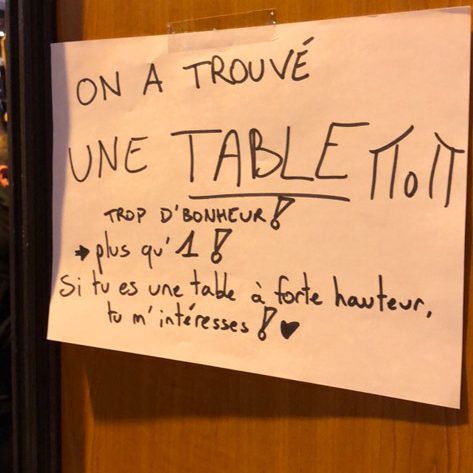 ON A TROUVÉ
UNE TABLE
TROP D'BONHEUR!
→ plus qu'1!
Si tu es une table à forte hauteur,
tu m'intéresses! ♥